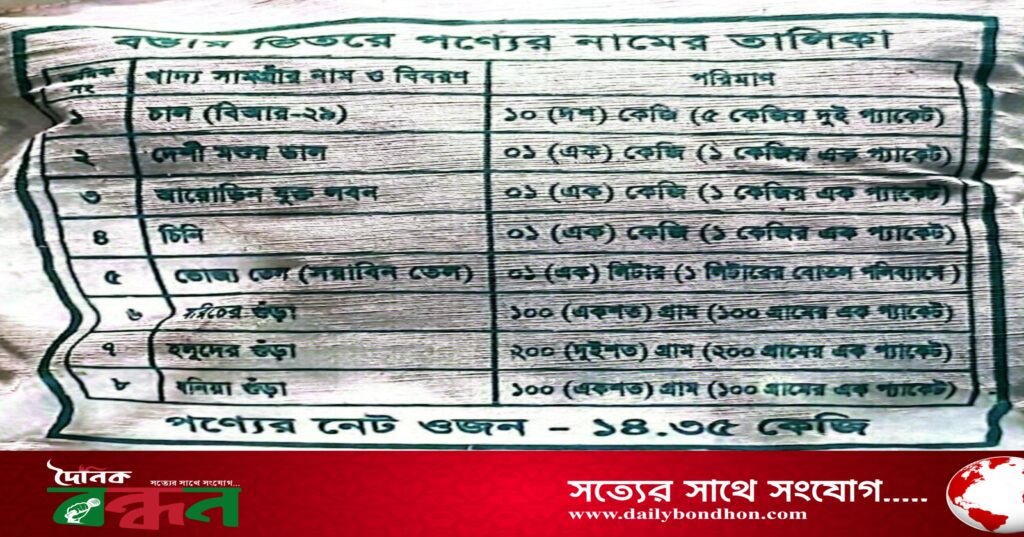 বস্তার ভিতরে পণ্যের নামের তালিকা
ক্রমিক নং খাদ্য সামগ্রীর নাম ও বিবরণ পরিমাণ
১ চাল (বিআর-২৯) ১০ (দশ) কেজি (৫ কেজির দুই প্যাকেট)
২ দেশী মশুর ডাল ০১ (এক) কেজি (১ কেজির এক প্যাকেট)
৩ আয়োডিন যুক্ত লবন ০১ (এক) কেজি (১ কেজির এক প্যাকেট)
৪ চিনি ০১ (এক) কেজি (১ কেজির এক প্যাকেট)
৫ ভোজ্য তেল (সয়াবিন তেল) ০১ (এক) লিটার (১ লিটারের বোতল পলিব্যাগে)
৬ মরিচের গুঁড়া ১০০ (একশত) গ্রাম (১০০ গ্রামের এক প্যাকেট)
৭ হলুদের গুঁড়া ২০০ (দুইশত) গ্রাম (২০০ গ্রামের এক প্যাকেট)
৮ ধনিয়া গুঁড়া ১০০ (একশত) গ্রাম (১০০ গ্রামের এক প্যাকেট)
পণ্যের নেট ওজন - ১৪.৩৫ কেজি
দৈনিক
সত্যের সাথে সংযোগ...
বন্ধন
সত্যের সাথে সংযোগ.....
www.dailybondhon.com